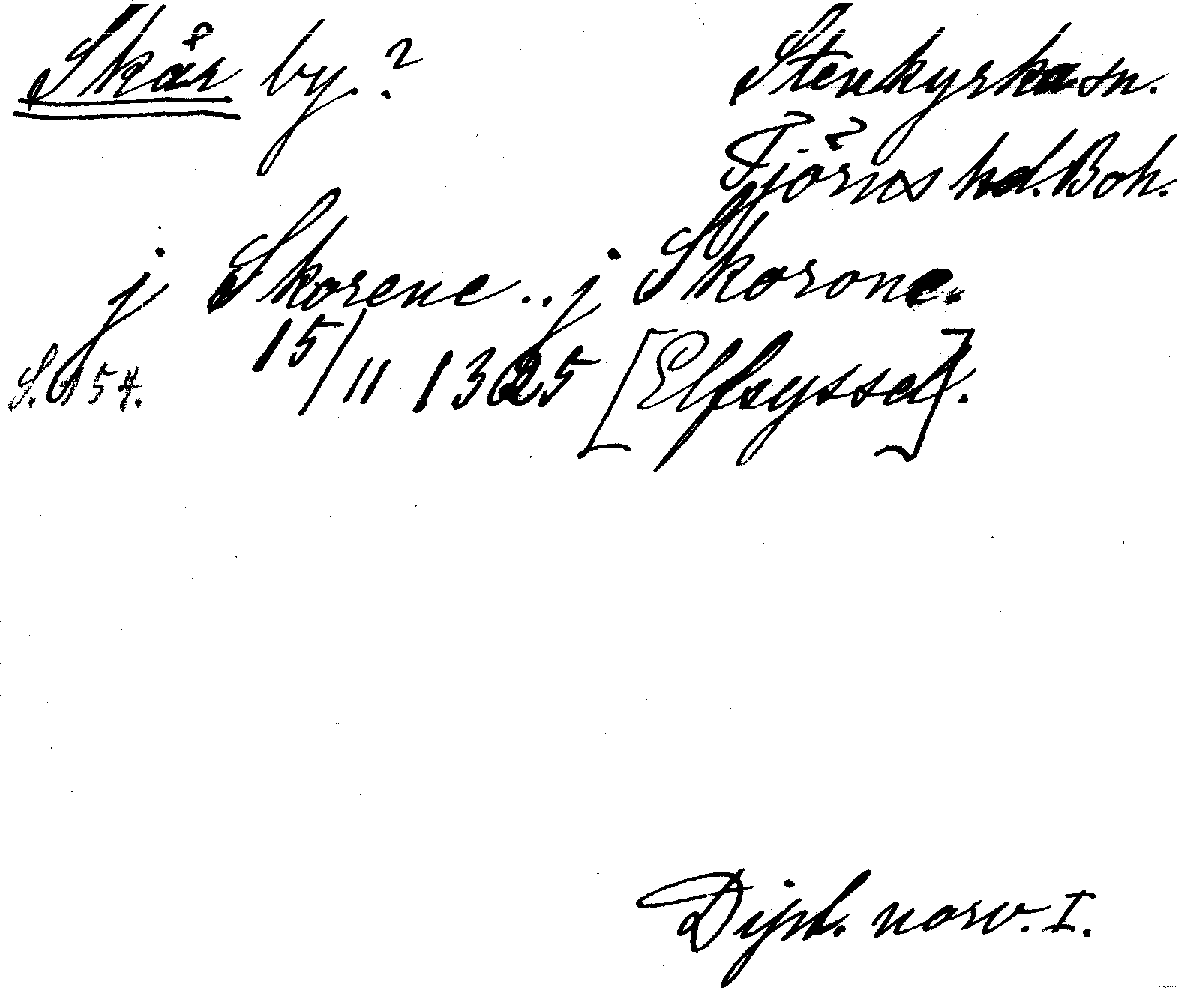 Skår by.?
Stenkyrka sn.
Tjörns hd. Boh.
j Skorene .. j Skorone.
S. 154. 15/11 1325 [Elfsyssel].
Dipl. norv. I.